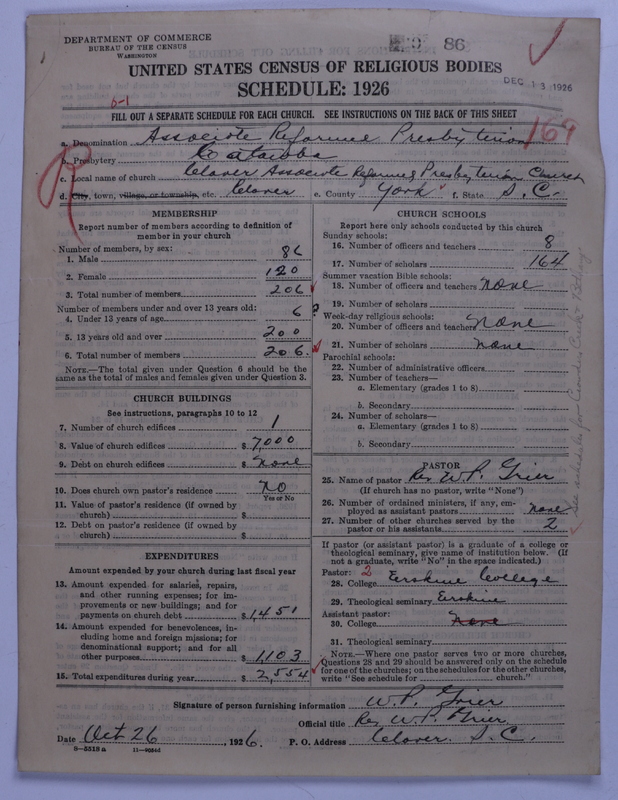 DEPARTMENT OF COMMERCE
BUREAU OF THE CENSUS
WASHINGTON
86
UNITED STATES CENSUS OF RELIGIOUS BODIES
DEC 13 1926
SCHEDULE: 1926
6-1
FILL OUT A SEPARATE SCHEDULE FOR EACH CHURCH. SEE INSTRUCTIONS ON THE BACK OF THIS SHEET
169
a. Denomination Associate Reformed Presbyterian
b. Presbytery Catawba
c. Local name of church Clover Associate Reformed Presbyterian Church
d. City, town, village, or township, etc. Clover e. County York f. State S. C.
MEMBERSHIP
Report number of members according to definition of
member in your church
Number of members, by sex:
1. Male 86
2. Female 120
3. Total number of members 206
Number of members under and over 13 years old:
4. Under 13 years of age 6 ?
5. 13 years old and over 200
6. Total number of members 206
NOTE.—The total given under Question 6 should be the
same as the total of males and females given under Question 3.
CHURCH BUILDINGS
See instructions, paragraphs 10 to 12
7. Number of church edifices 1
8. Value of church edifices $ 7,000
9. Debt on church edifices $ none
10. Does church own pastor's residence NO
Yes or No
11. Value of pastor's residence (if owned by
church) $
12. Debt on pastor's residence (if owned by
church) $
EXPENDITURES
Amount expended by your church during last fiscal year
13. Amount expended for salaries, repairs,
and other running expenses; for im-
provements or new buildings; and for
payments on church debt $ 1,451
14. Amount expended for benevolences, in-
cluding home and foreign missions; for
denominational support; and for all
other purposes $ 1,103
15. Total expenditures during year $ 2,554
CHURCH SCHOOLS
Report here only schools conducted by this church
Sunday schools:
16. Number of officers and teachers 8
17. Number of scholars 164
Summer vacation Bible schools:
18. Number of officers and teachers none
19. Number of scholars
Week-day religious schools:
20. Number of officers and teachers None
21. Number of scholars none
Parochial schools:
22. Number of administrative officers
23. Number of teachers—
a. Elementary (grades 1 to 8)
b. Secondary
24. Number of scholars—
a. Elementary (grades 1 to 8)
b. Secondary
PASTOR
25. Name of pastor Rev W. P. Grier
(If church has no pastor, write "None")
26. Number of ordained ministers, if any, em-
ployed as assistant pastors none
27. Number of other churches served by the
pastor or his assistants 2
If pastor (or assistant pastor) is a graduate of a college or
theological seminary, give name of institution below. (If
not a graduate, write "No" in the space indicated.)
Pastor: 2
28. College Erskine College
29. Theological seminary Erskine
Assistant pastor:
30. College None
31. Theological seminary
NOTE.—Where one pastor serves two or more churches,
Questions 28 and 29 should be answered only on the schedule
for one of the churches; on the schedules for the other churches,
write "See schedule for church."
See schedules for
Signature of person furnishing information W. P. Grier
Official title Rev W. P. Grier
Date Oct 26, 1926. P. O. Address Clover. S. C.
8—5518 a